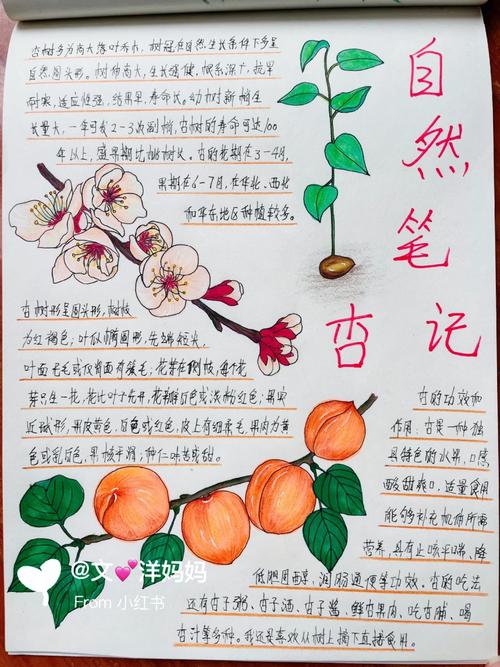 自然笔记
杏
杏树多为高大落叶乔木，树冠在自然生长条件下多呈
自然圆头形。树体高大，生长强健，根系深广，抗旱
耐寒，适应性强，结果早，寿命长。幼树新梢生
长量大，一年可发2-3次副梢，杏树的寿命可达100
年以上，盛果期比桃树长。杏的花期在3-4月，
果期在6-7月，在华北、西北
和华东地区种植较多。
杏树形呈圆头形，树枝
为红褐色；叶似椭圆形，先端短尖，
叶面无毛或仅背面有簇毛；花芽在侧枝，每个花
芽只生一花，花比叶子先开，花瓣白色或浅粉红色；果实
近球形，果皮黄色，白色或红色，皮上有细柔毛，果肉为黄
色或乳白色，果核平滑，种仁味苦或甜。
杏的功效和
作用：杏是一种独
具特色的水果，口感
酸甜爽口，适量食用
能够补充机体所需
营养，具有止咳平喘、降
低胆固醇，润肠通便等功效。杏的吃法
还有杏子粥、杏子酒、杏子酱、鲜杏果肉、吃杏脯、喝
杏汁等多种。我还是喜欢从树上摘下直接食用。
@文💕洋妈妈
From 小红书